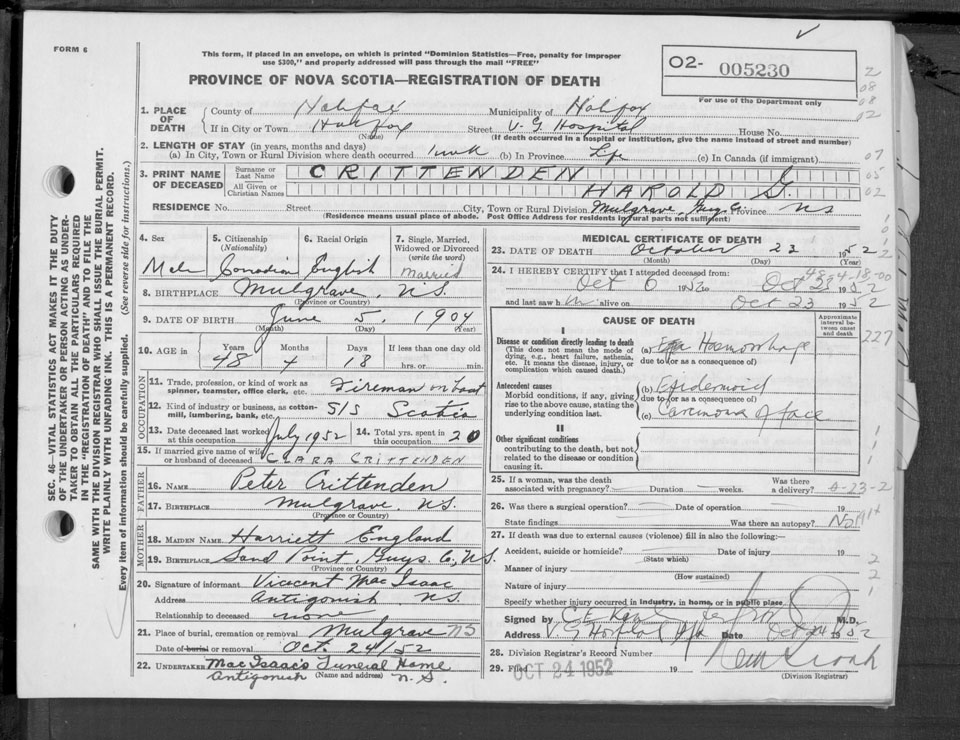 FORM 6
This form, if placed in an envelope, on which is printed "Dominion Statistics—Free, penalty for improper
use $300," and properly addressed will pass through the mail "FREE"
PROVINCE OF NOVA SCOTIA—REGISTRATION OF DEATH
O2- 005230
For use of the Department only
1. PLACE OF DEATH
County of Halifax Municipality of Halifax
If in City or Town Halifax Street V.G Hospital House No.
(Name) (If death occurred in a hospital or institution, give the name instead of street and number)
2. LENGTH OF STAY (in years, months and days)
(a) In City, Town or Rural Division where death occurred 1 wk (b) In Province Life (c) In Canada (if immigrant)
3. PRINT NAME OF DECEASED
Surname or Last Name CRITTENDEN
All Given or Christian Names HAROLD G.
RESIDENCE No. Street City, Town or Rural Division Mulgrave, Guys Co Province NS
(Residence means usual place of abode. Post Office Address for residents in rural parts not sufficient)
4. Sex 5. Citizenship (Nationality) 6. Racial Origin 7. Single, Married, Widowed or Divorced (write the word)
Male Canadian English Married
8. BIRTHPLACE Mulgrave, N.S.
(Province or Country)
9. DATE OF BIRTH June 5, 1904
(Month) (Day) (Year)
10. AGE in Years Months Days If less than one day old
48 4 18 hrs. or min.
OCCUPATION
11. Trade, profession, or kind of work as spinner, teamster, office clerk, etc. Fireman on boat
12. Kind of industry or business, as cotton-mill, lumbering, bank, etc. S/S Scotia
13. Date deceased last worked at this occupation July 1952 14. Total yrs. spent in this occupation 20
15. If married give name of wife or husband of deceased CLARA CRITTENDEN
FATHER
16. NAME Peter Crittenden
17. BIRTHPLACE Mulgrave, N.S.
(Province or Country)
MOTHER
18. MAIDEN NAME Harriett England
19. BIRTHPLACE Sand Point, Guys Co, N.S.
(Province or Country)
20. Signature of informant Vincent Mac Isaac
Address Antigonish, N.S.
Relationship to deceased none
21. Place of burial, cremation or removal Mulgrave NS
Date of burial or removal Oct. 24/52
22. UNDERTAKER MacIsaac's Funeral Home
Antigonish (Name and address) N.S.
MEDICAL CERTIFICATE OF DEATH
23. DATE OF DEATH October 23 1952
(Month) (Day) (Year)
48-4-18-00
24. I HEREBY CERTIFY that I attended deceased from:
Oct 6 1952 to Oct 23 1952
and last saw h im alive on Oct 23 1952
CAUSE OF DEATH
Approximate interval between onset and death
227
I
Disease or condition directly leading to death
(This does not mean the mode of dying, e.g., heart failure, asthenia, etc. It means the disease, injury, or complication which caused death.)
(a) Haemorrhage
due to (or as a consequence of)
Antecedent causes
Morbid conditions, if any, giving rise to the above cause, stating the underlying condition last.
(b) Epidermoid
due to (or as a consequence of)
(c) Carcinoma of face
II
Other significant conditions
contributing to the death, but not related to the disease or condition causing it.
25. If a woman, was the death associated with pregnancy? Duration weeks. Was there a delivery?
26. Was there a surgical operation? Date of operation 19
State findings Was there an autopsy? No
27. If death was due to external causes (violence) fill in also the following:—
Accident, suicide or homicide? Date of injury 19
(State which)
Manner of injury
(How sustained)
Nature of injury
Specify whether injury occurred in industry, in home, or in public place
Signed by M.D.
Address V G Hospital Date Oct 24 1952
28. Division Registrar's Record Number
29. Filed OCT 24 1952 19
(Division Registrar)
SEC. 46—VITAL STATISTICS ACT MAKES IT THE DUTY
OF THE UNDERTAKER OR PERSON ACTING AS UNDER-
TAKER TO OBTAIN ALL THE PARTICULARS REQUIRED
IN THE "REGISTRATION OF DEATH" AND TO FILE THE
SAME WITH THE DIVISION REGISTRAR WHO SHALL ISSUE THE BURIAL PERMIT.
WRITE PLAINLY WITH UNFADING INK. THIS IS A PERMANENT RECORD.
Every item of information should be carefully supplied. (See reverse side for instructions.)